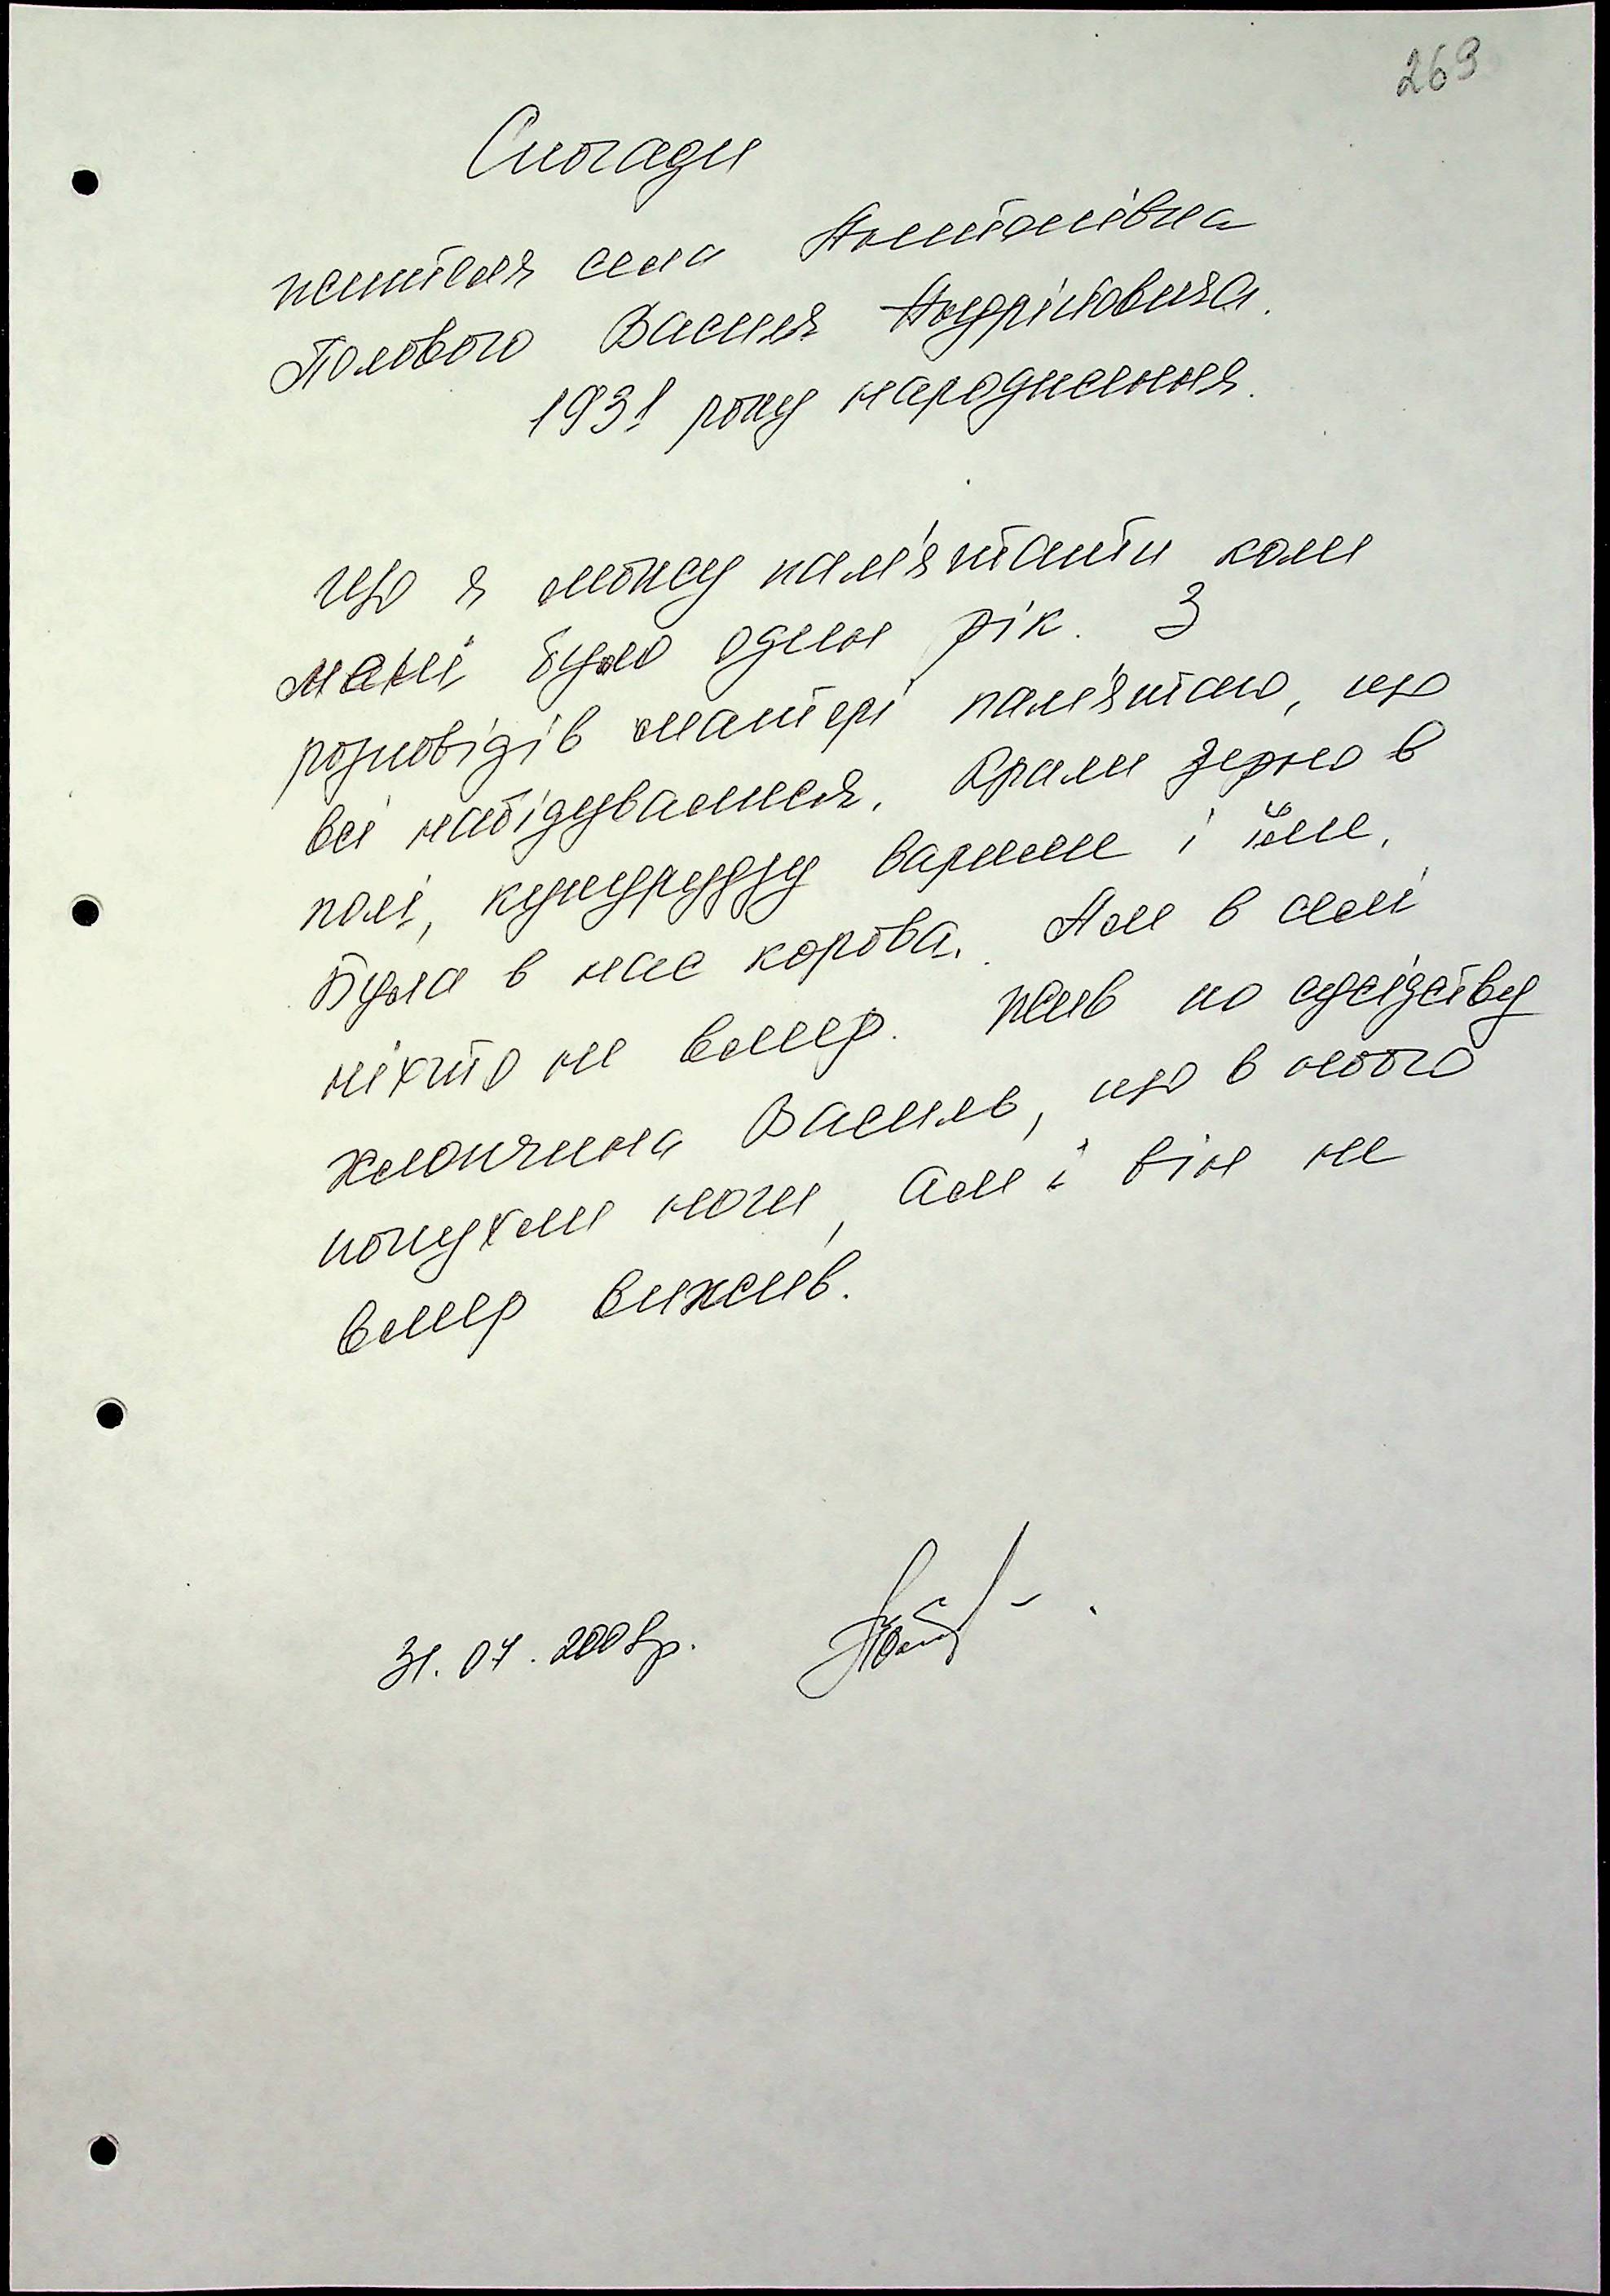 269
Спогади
жителя села Антонівка
Полового Василя Андрійовича.
1931 року народження.
що я можу пам'ятати коли
мені було один рік. З
розповідів матері пам'ятаю, що
всі набідувалися. Крали зерно в
полі, кукурудзу варили і їли.
Була в нас корова. Але в селі
ніхто не вмер. Жив по сусідству
хлопчина Василь, що в нього
попухли ноги, але і він не
вмер вижив.
31.07.2008р.